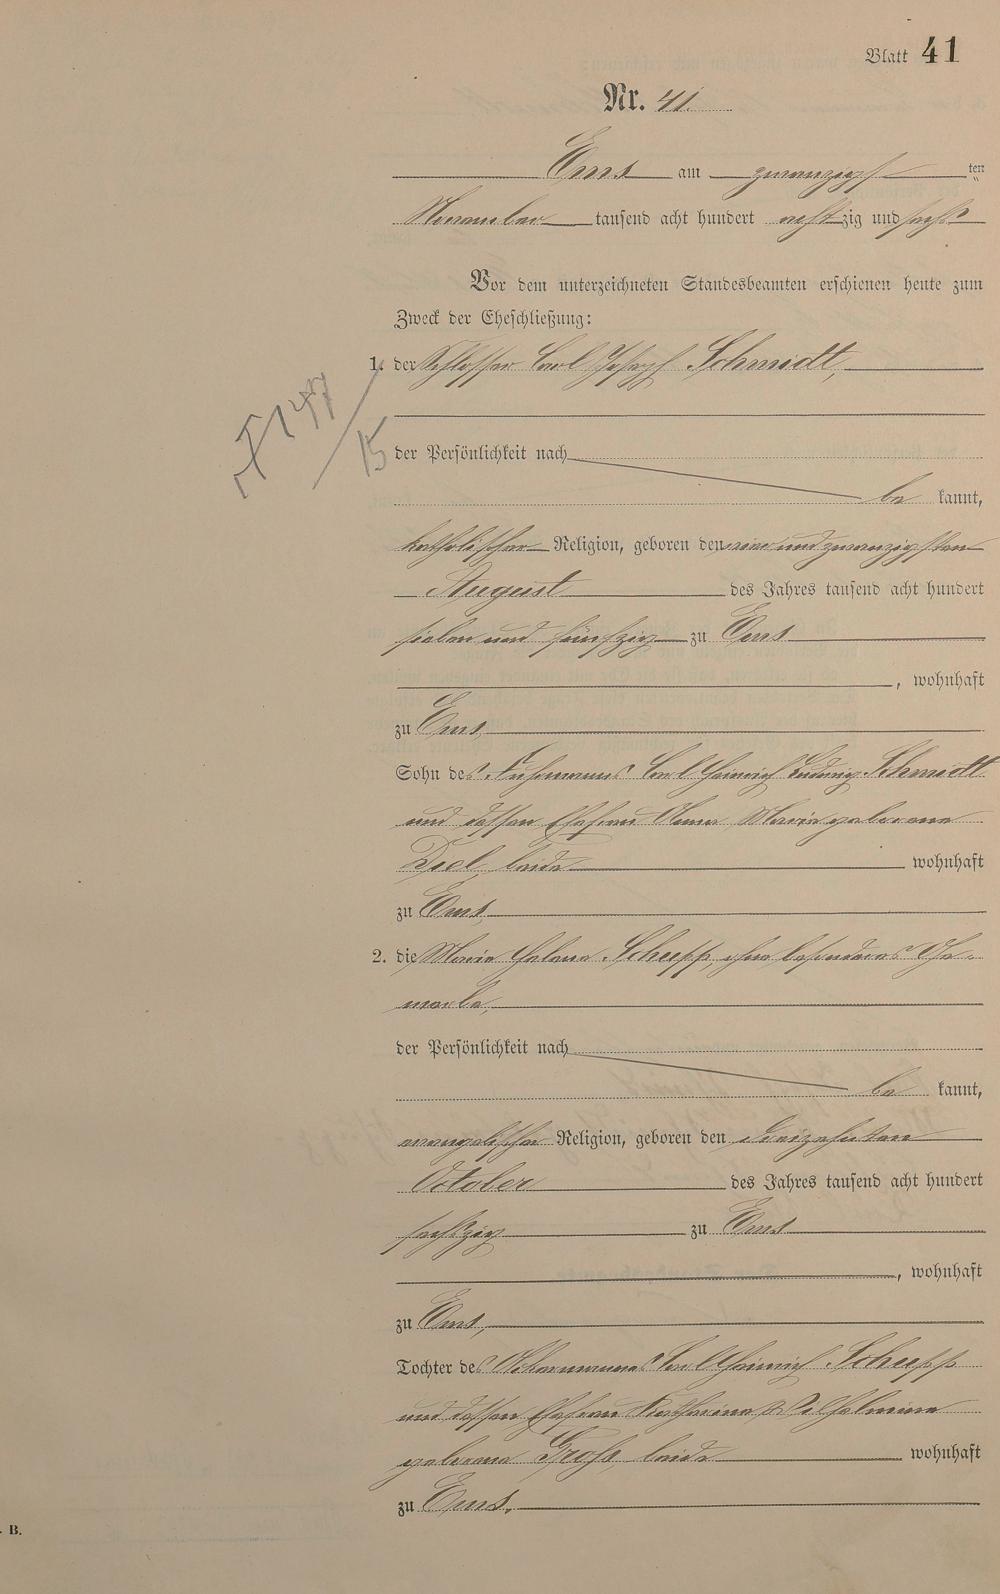 Blatt 41
Nr. 41.
Ems am zwanzigsten
November tausend acht hundert achtzig und sechs
Vor dem unterzeichneten Standesbeamten erschienen heute zum
Zweck der Eheschließung:
1. der Schlosser Carl Joseph Schmidt,
147
15
der Persönlichkeit nach
be kannt,
katholischer Religion, geboren den ein und zwanzigsten
August des Jahres tausend acht hundert
sieben und fünfzig zu Ems
, wohnhaft
zu Ems,
Sohn des Fuhrmanns Carl Heinrich Ludwig Schmidt
und dessen Ehefrau Anna Maria geborene
Diel, beide wohnhaft
zu Ems,
2. die Maria Helena Schupp, ohne besonderes Ge-
werbe,
der Persönlichkeit nach
be kannt,
evangelischer Religion, geboren den dreizehnten
October des Jahres tausend acht hundert
sechszig zu Ems
, wohnhaft
zu Ems,
Tochter des Ackermannes Carl Heinrich Schupp
und dessen Ehefrau Katharina Wilhelmine
geborene Groß, beide wohnhaft
zu Ems.
B.